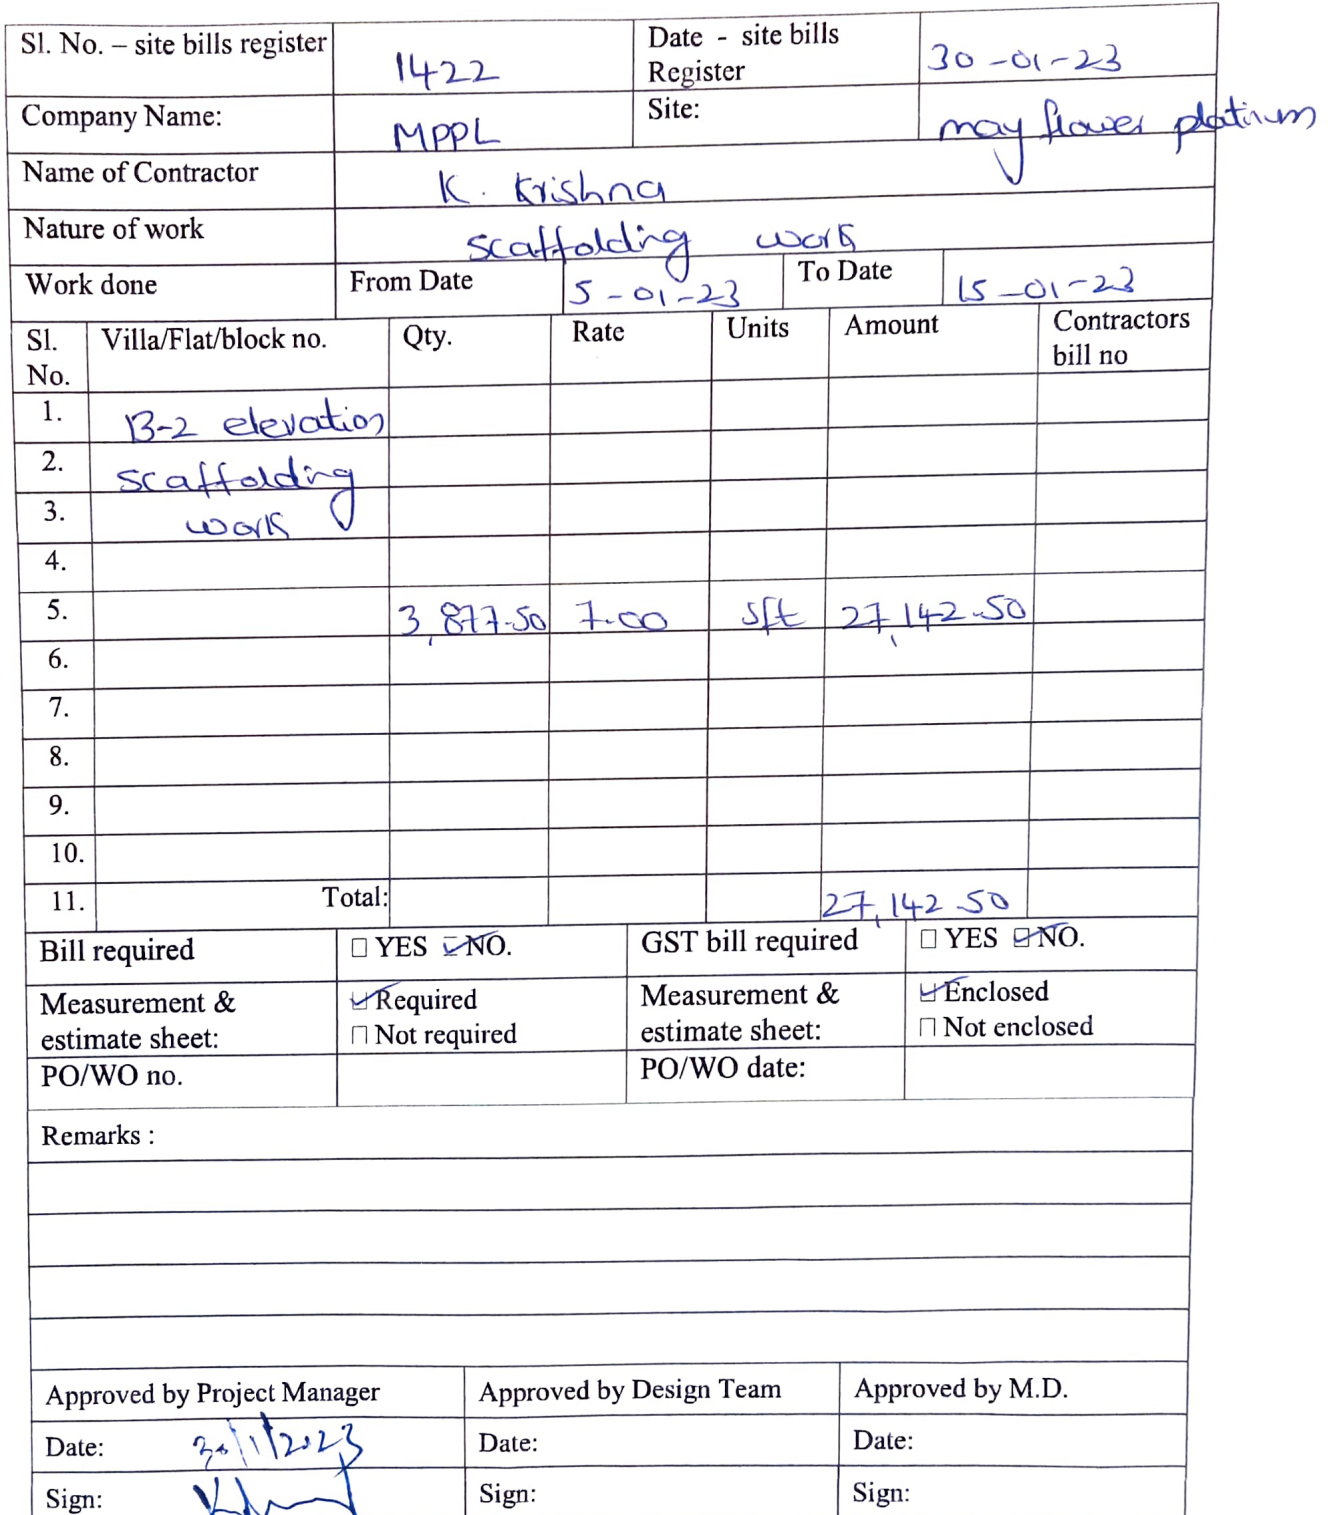 Sl. No. – site bills register 1422 Date - site bills Register 30-01-23
Company Name: MPPL Site: may flower platinum
Name of Contractor K. Krishna
Nature of work scaffolding work
Work done From Date 5-01-23 To Date 15-01-23
Sl. No. Villa/Flat/block no. Qty. Rate Units Amount Contractors bill no
1. B-2 elevation
2. scaffolding
3. work
4.
5. 3,877.50 7.00 sft 27,142.50
6.
7.
8.
9.
10.
11. Total: 27,142.50
Bill required ☐ YES ☑ NO. GST bill required ☐ YES ☑ NO.
Measurement & estimate sheet: ☑ Required ☐ Not required Measurement & estimate sheet: ☑ Enclosed ☐ Not enclosed
PO/WO no. PO/WO date:
Remarks :
Approved by Project Manager Approved by Design Team Approved by M.D.
Date: 30/1/2023 Date: Date:
Sign: Sign: Sign: